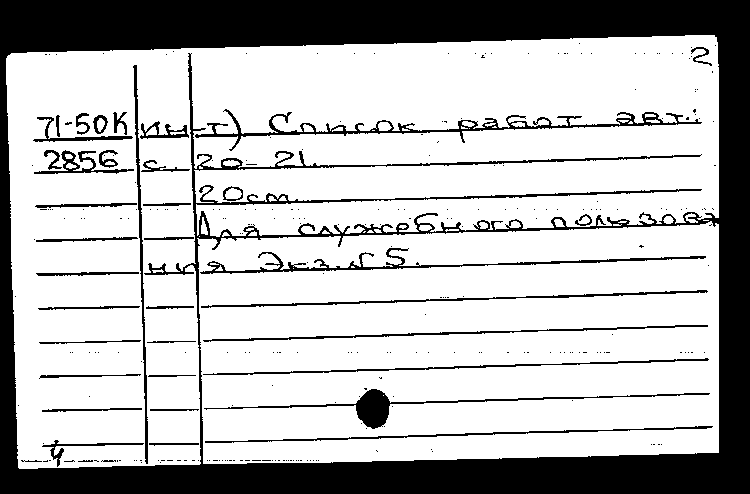 2
71-50К ин-т) Список работ авт.:
2856 с. 20-21.
20см.
Для служебного пользова
ния Экз. № 5.
4